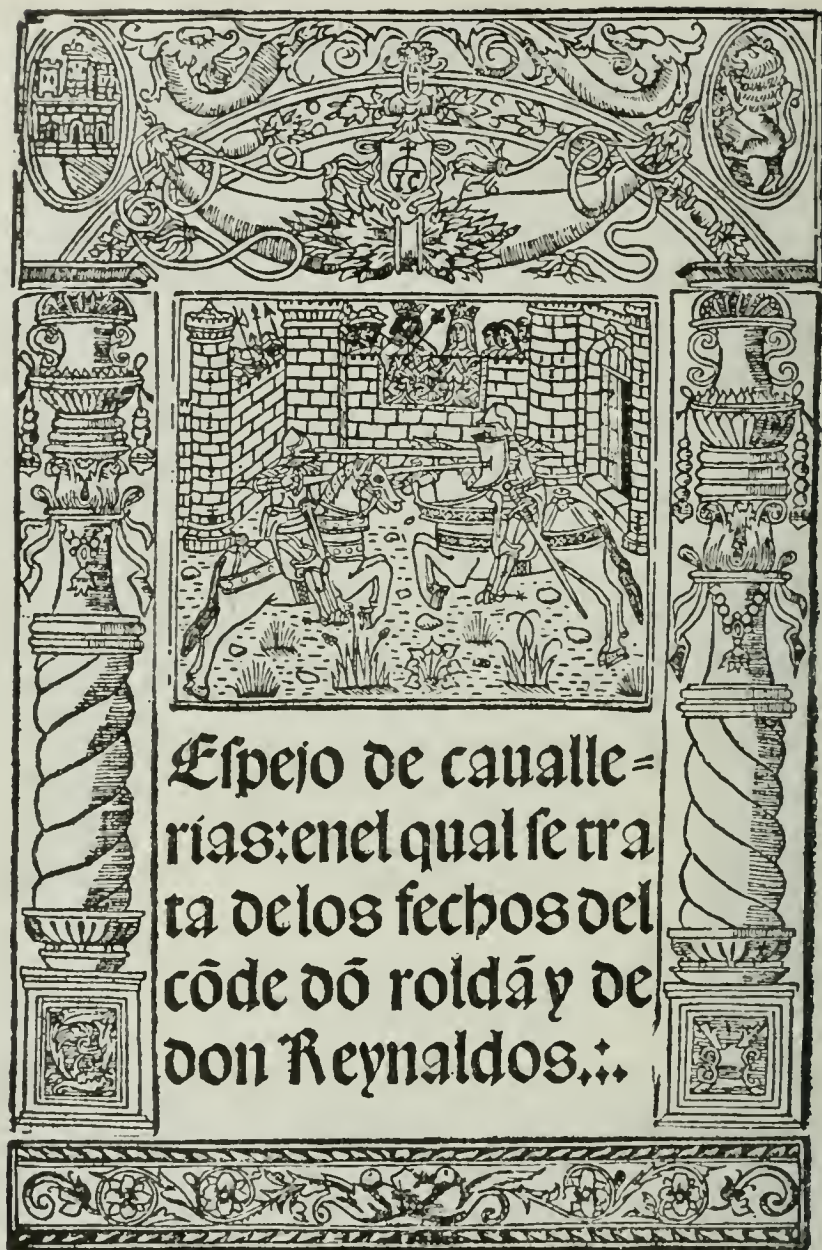 Eſpejo de caualle=
rias:enel qual ſe tra
ta delos fechos del
cõde dõ roldã y de
don Reynaldos.:.